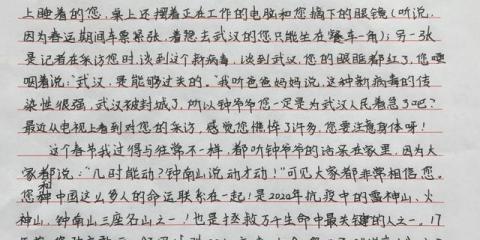 上睡着的您,桌上还摆着正在工作的电脑和您摘下的眼镜(听说,
因为春运期间车票紧张,着想去武汉的您只能坐在餐车一角);另一张
是记者在采访您时,谈到这个新病毒,谈到武汉,您的眼睛都红了,您哽
咽着说:“武汉,是能够过关的。”我听爸爸妈妈说,这种新病毒的传
染性很强,武汉被封城了,所以钟爷爷您一定是为武汉人民着急了吧?
最近从电视上看到对您的采访,感觉您憔悴了许多,您要注意身体呀!
这个春节我过得与往常不一样,都听钟爷爷的话呆在家里,因为大
家都说:“几时能动?钟南山说动才动!”可见大家都非常相信您。
您和中国这么多人的命运联系在一起!是2020年抗疫中的雷神山、火
神山、钟南山三座名山之一!也是拯救万千生命中最关键的人之一。17